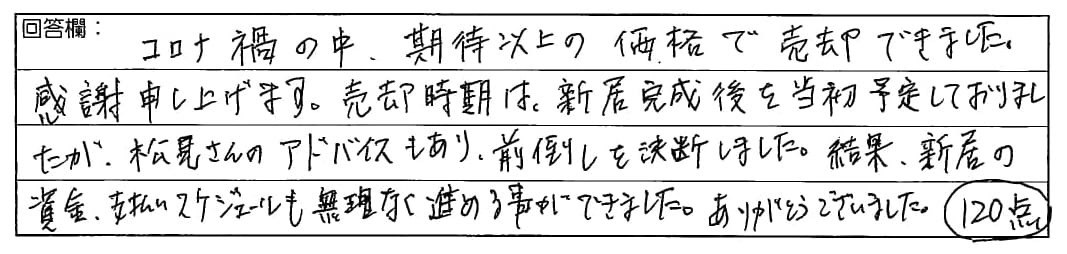 回答欄：
コロナ禍の中、期待以上の価格で売却できました。
感謝申し上げます。売却時期は、新居完成後を当初予定しておりまし
たが、松見さんのアドバイスもあり、前倒しを決断しました。結果、新居の
資金、支払いスケジュールも無理なく進める事ができました。ありがとうございました。 120点